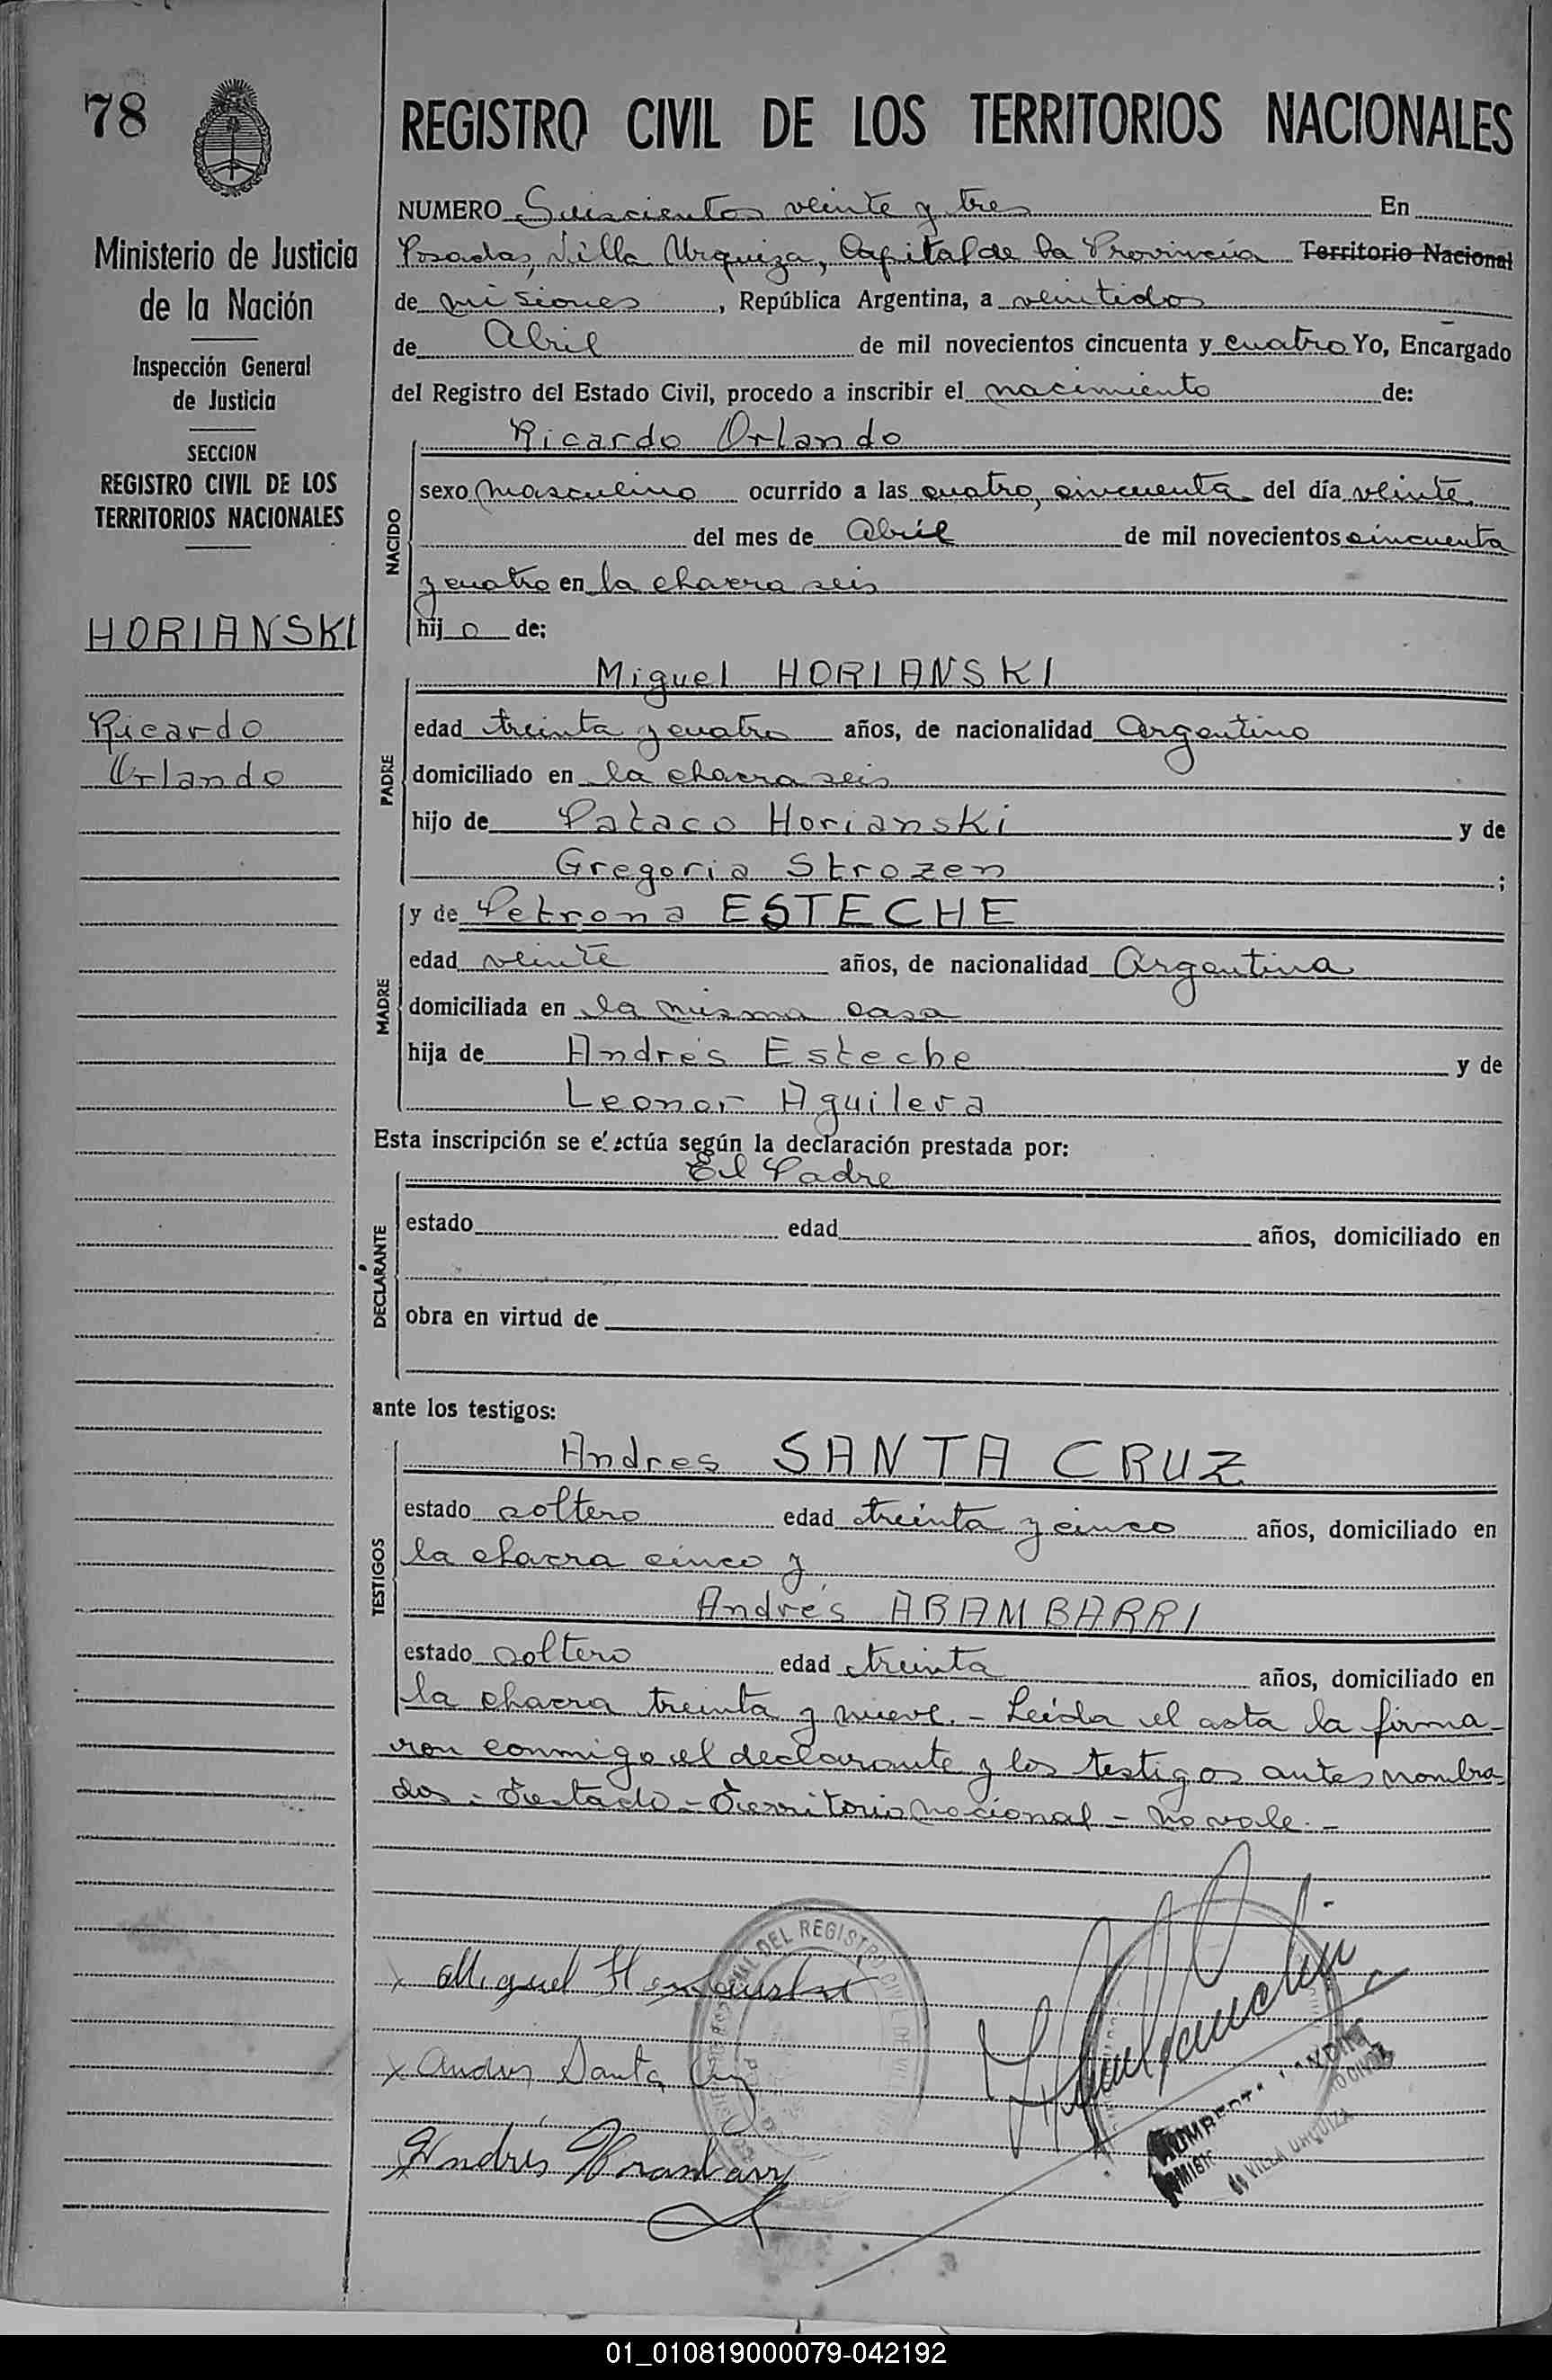 78
REGISTRO CIVIL DE LOS TERRITORIOS NACIONALES
Ministerio de Justicia
de la Nación
Inspección General
de Justicia
SECCION
REGISTRO CIVIL DE LOS
TERRITORIOS NACIONALES
HORIANSKI
Ricardo
Orlando
NUMERO Seiscientos veinte y tres En
Posadas, Villa Urquiza, Capital de la Provincia Territorio Nacional
de Misiones, República Argentina, a veintidos
de Abril de mil novecientos cincuenta y cuatro Yo, Encargado
del Registro del Estado Civil, procedo a inscribir el nacimiento de:
NACIDO
Ricardo Orlando
sexo masculino ocurrido a las cuatro, cincuenta del día veinte
del mes de Abril de mil novecientos cincuenta
y cuatro en la chacra seis
hijo de:
PADRE
Miguel HORIANSKI
edad treinta y cuatro años, de nacionalidad Argentino
domiciliado en la chacra seis
hijo de Pataco Horianski y de
Gregoria Strozen ;
MADRE
y de Petrona ESTECHE
edad veinte años, de nacionalidad Argentina
domiciliada en la misma casa
hija de Andrés Esteche y de
Leonor Aguilera
Esta inscripción se efectúa según la declaración prestada por:
DECLARANTE
El Padre
estado edad años, domiciliado en
obra en virtud de
ante los testigos:
TESTIGOS
Andres SANTA CRUZ
estado soltero edad treinta y cinco años, domiciliado en
la chacra cinco y
Andrés ARAMBARRI
estado soltero edad treinta años, domiciliado en
la chacra treinta y nueve.- Leída el acta la firma-
ron conmigo el declarante y los testigos antes nombra-
dos.- Testado - Territorio nacional - no vale.-
DEL REGISTRO CIVIL DE
Miguel Horianski
Andres Santa Cruz
Andrés Arambarri
de VILLA URQUIZA
01_010819000079-042192